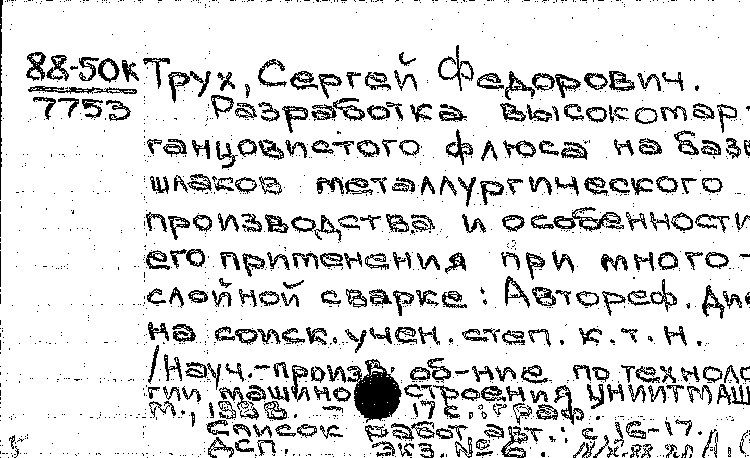 88-50к Трух, Сергей Федорович.
7753 Разработка высокомар
ганцовистого флюса на базе
шлаков металлургического
производства и особенности
его применения при много-
слойной сварке: Автореф. дис
на соиск. учен. степ. к.т.н.
/Науч.-произв. об-ние по техноло
гии машиностроения ЦНИИТМАШ
М., 1988. - 17 с.: граф.
Список работ авт.: с. 16-17.
ДСП. экз. № 6.